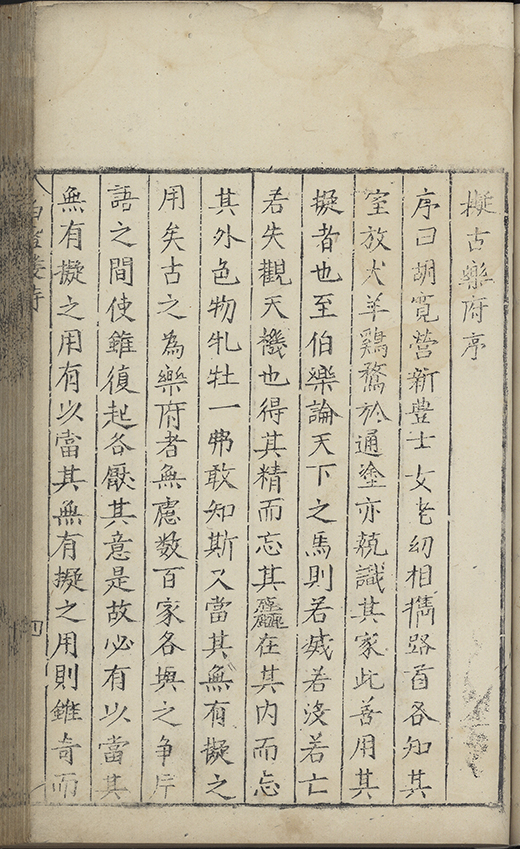 擬古樂府序
序曰胡寛營新豊士女老幼相擕路首各知其
室放犬羊鷄鶩於通塗亦競識其家此善用其
擬者也至伯樂論天下之馬則若滅若沒若亡
若失觀天機也得其精而忘其麤在其内而忘
其外色物牝牡一弗敢知斯又當其無有擬之
用矣古之為樂府者無慮数百家各與之争片
語之間使雖復起各厭其意是故必有以當其
無有擬之用有以當其無有擬之用則雖奇而
四